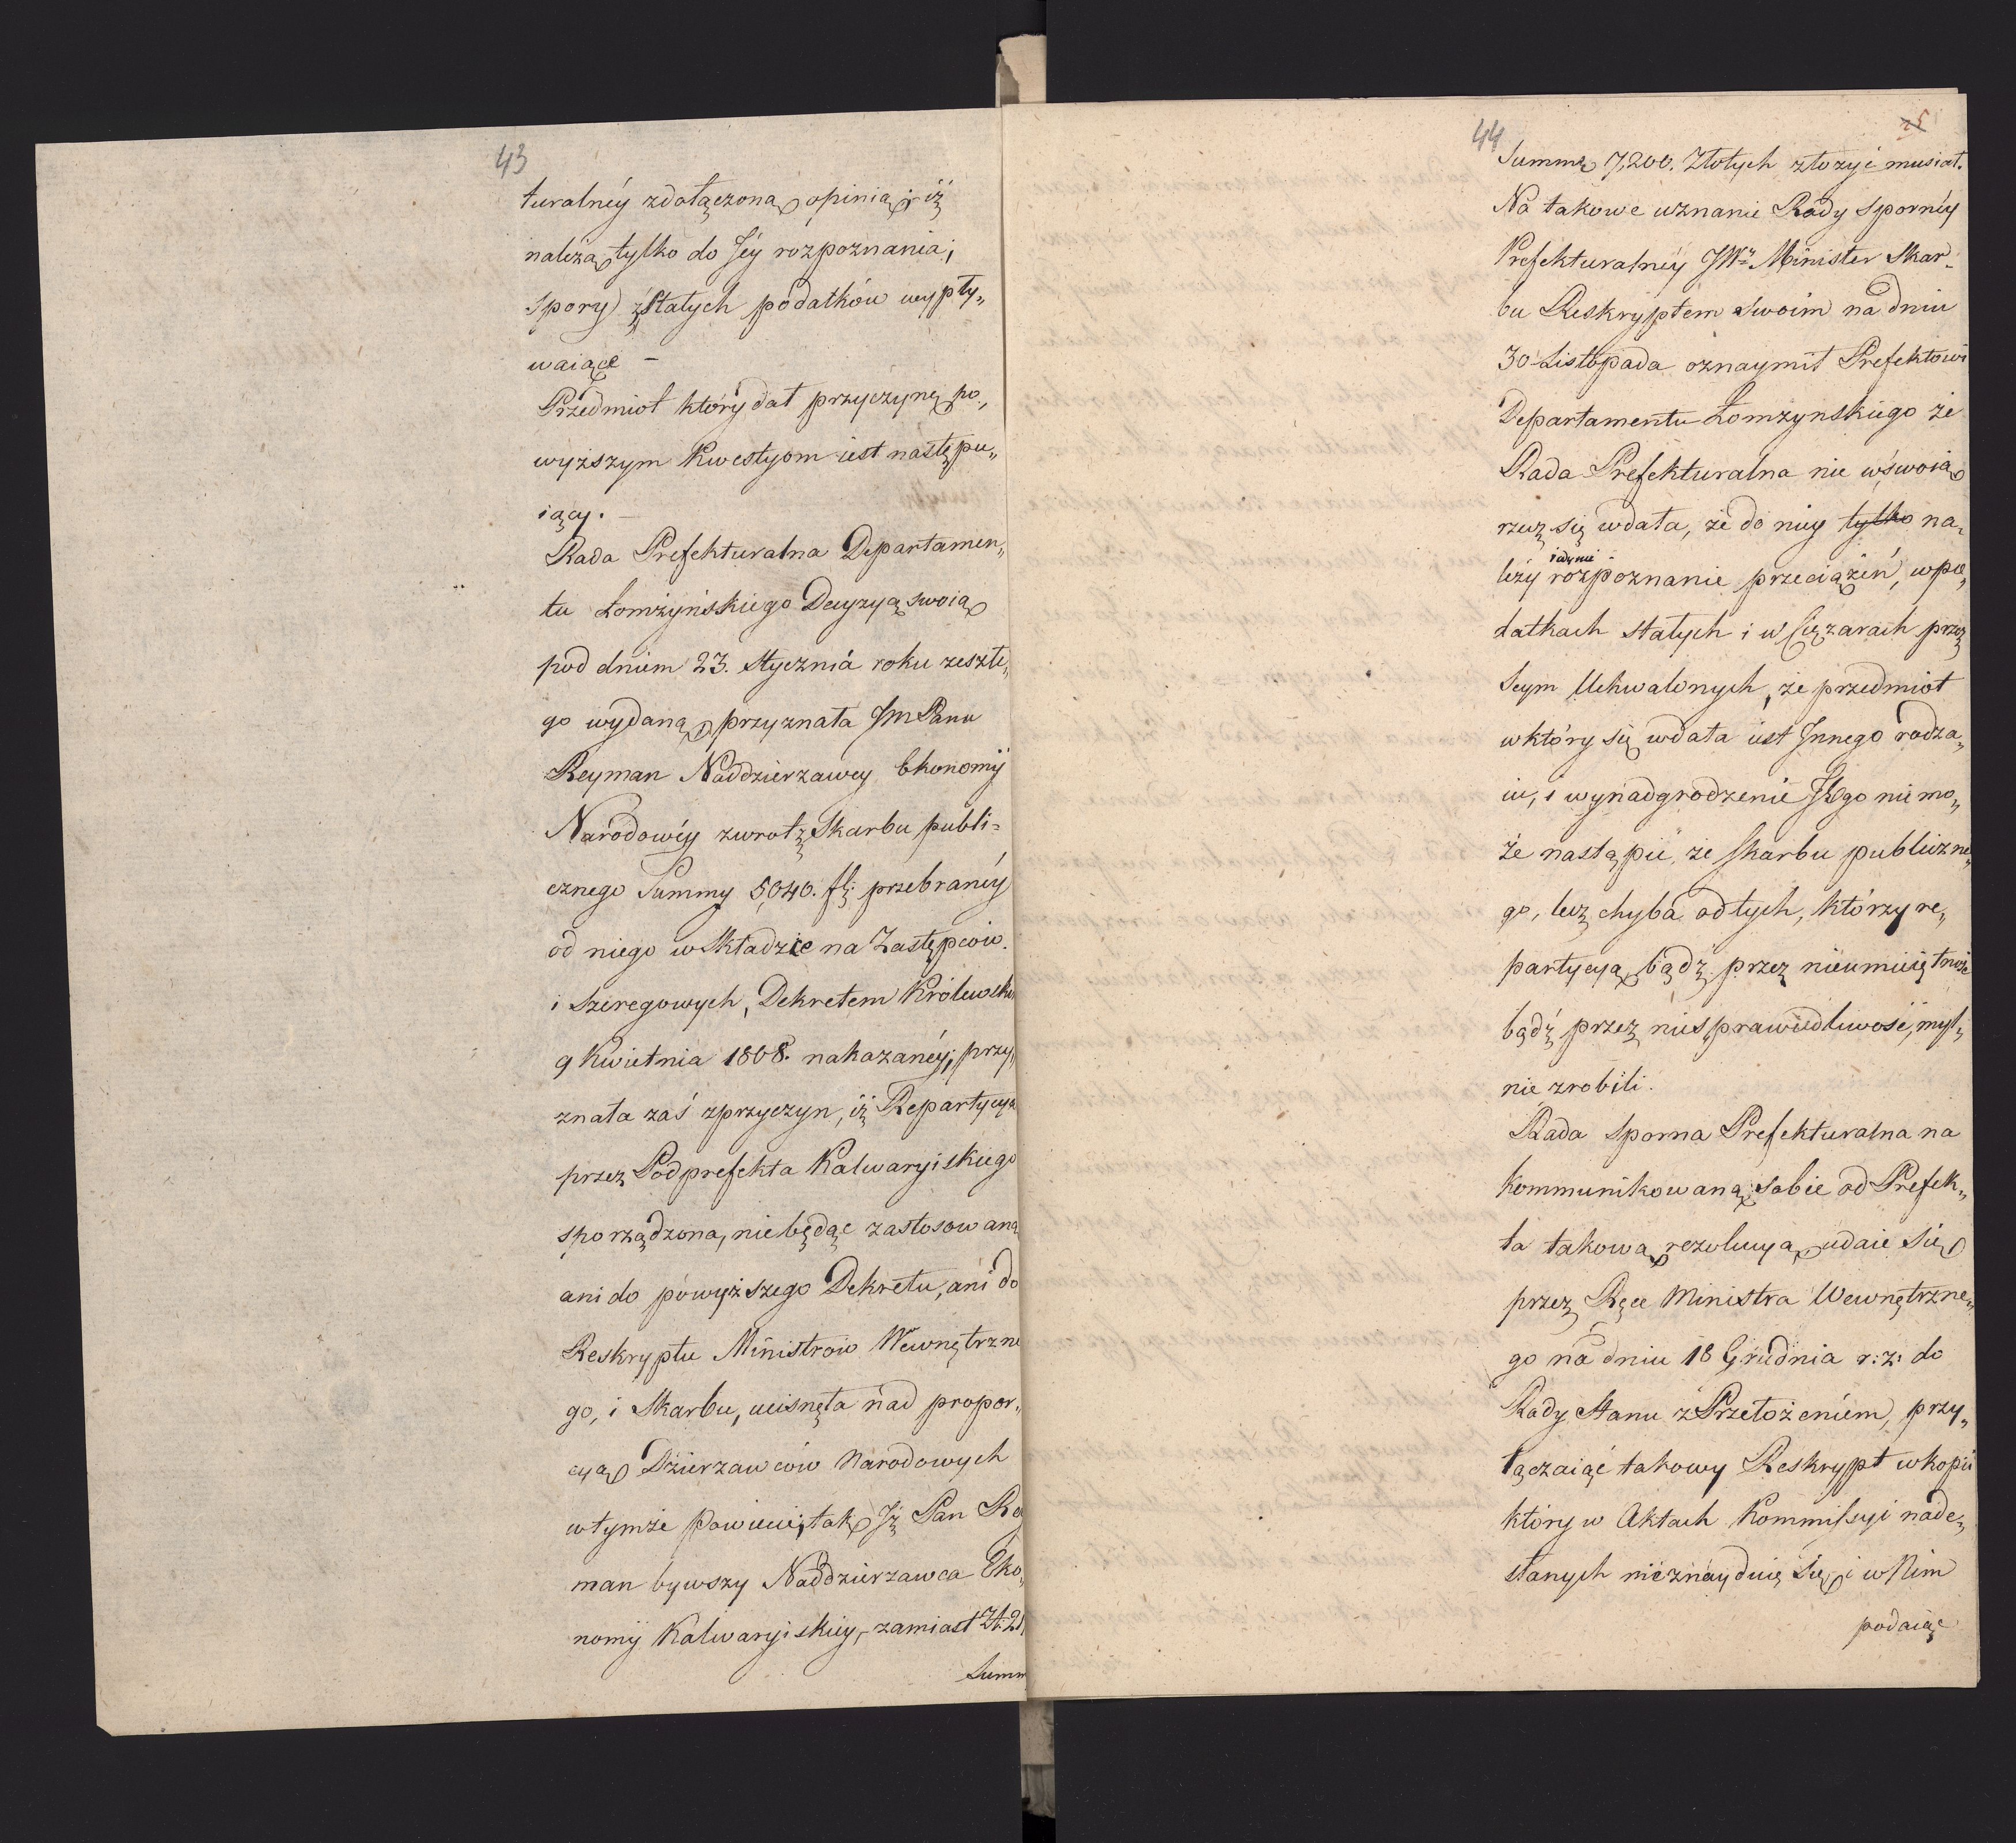 43
turalnéy zdołączoną opinią; iż
należą tylko do Jéy rozpoznania;
spory zstałych podatków wypły„
waiące –
Przedmiot który dał przyczynę po„
wyższym kwestyom iest nastę pu„
iący. –
Rada Prefekturalna Departamen„
tu Łomżyńskiego Decyzyą swoią
pod dniem 23. Stycznia roku zeszłe„
go wydaną, przyznała JmPanu
Reyman Naddzierzawcy Ekonomij
Narodowéy zwrot z Skarbu publi=
cznego Summy 5,040. fl: przebranéy
od niego w Składzie na Zastępców.
i szeregowych, Dekretem Królewski
9 Kwietnia 1808. nakazanéy; przy„
znała zaś zprzyczyn, iż Repartycya
przez Podprefekta Kalwaryiskiego
sporządzona, nie będąc zastosowaną
ani do powyższego Dekretu, ani do
Reskryptu Ministrów Wewnętrzne
go, i Skarbu, ucisnęła nad propor„
cyą Dzierzawców Narodowych
wtymże Powiecie, tak Jż Pan Rey
man bywszy Naddzierzawca Eko„
nomij Kalwaryiskiey, zamiast Zł: 21
Summ
44
25
Summę 7,200. Złotych złożyć musiał.
Na takowe uznanie Rady Spornéy
Prefekturalnéy JWny Minister Skar„
bu Reskryptem swoim na dniu
30 Listopada oznaymił Prefektowi
Departamentu Łomżynskiego że
Rada Prefekturalna nie wswoią
rzecz się wdała, że do niey tylko na„
iedynie
leży rozpoznanie przeciążeń, wpo„
datkach stałych i w Ciężarach przez
Seym Uchwalonych, że przedmiot
wktóry się wdała iest Jnnego rodza„
iu, i wynadgrodzenie JEgo nie mo„
że nastąpić, ze skarbu publiczne„
go, lecz chyba od tych, którzy re„
partycyą, bądź przez nieumieiętność
bądź przez niesprawiedliwość, myl„
nie zrobili.
Rada Sporna Prefekturalna na
kommunikowaną sobie od Prefek„
ta takową rezolucyą udaie się
przez Ręce Ministra Wewnętrzne„
go na dniu 18 Grudnia r: z: do
Rady Stanu z Przełożeniem, przy„
łączaiąć takowy Reskrypt w kopii
który w Aktach Kommissyi nade„
słanych nieznayduie się i w Nim
podaiąc